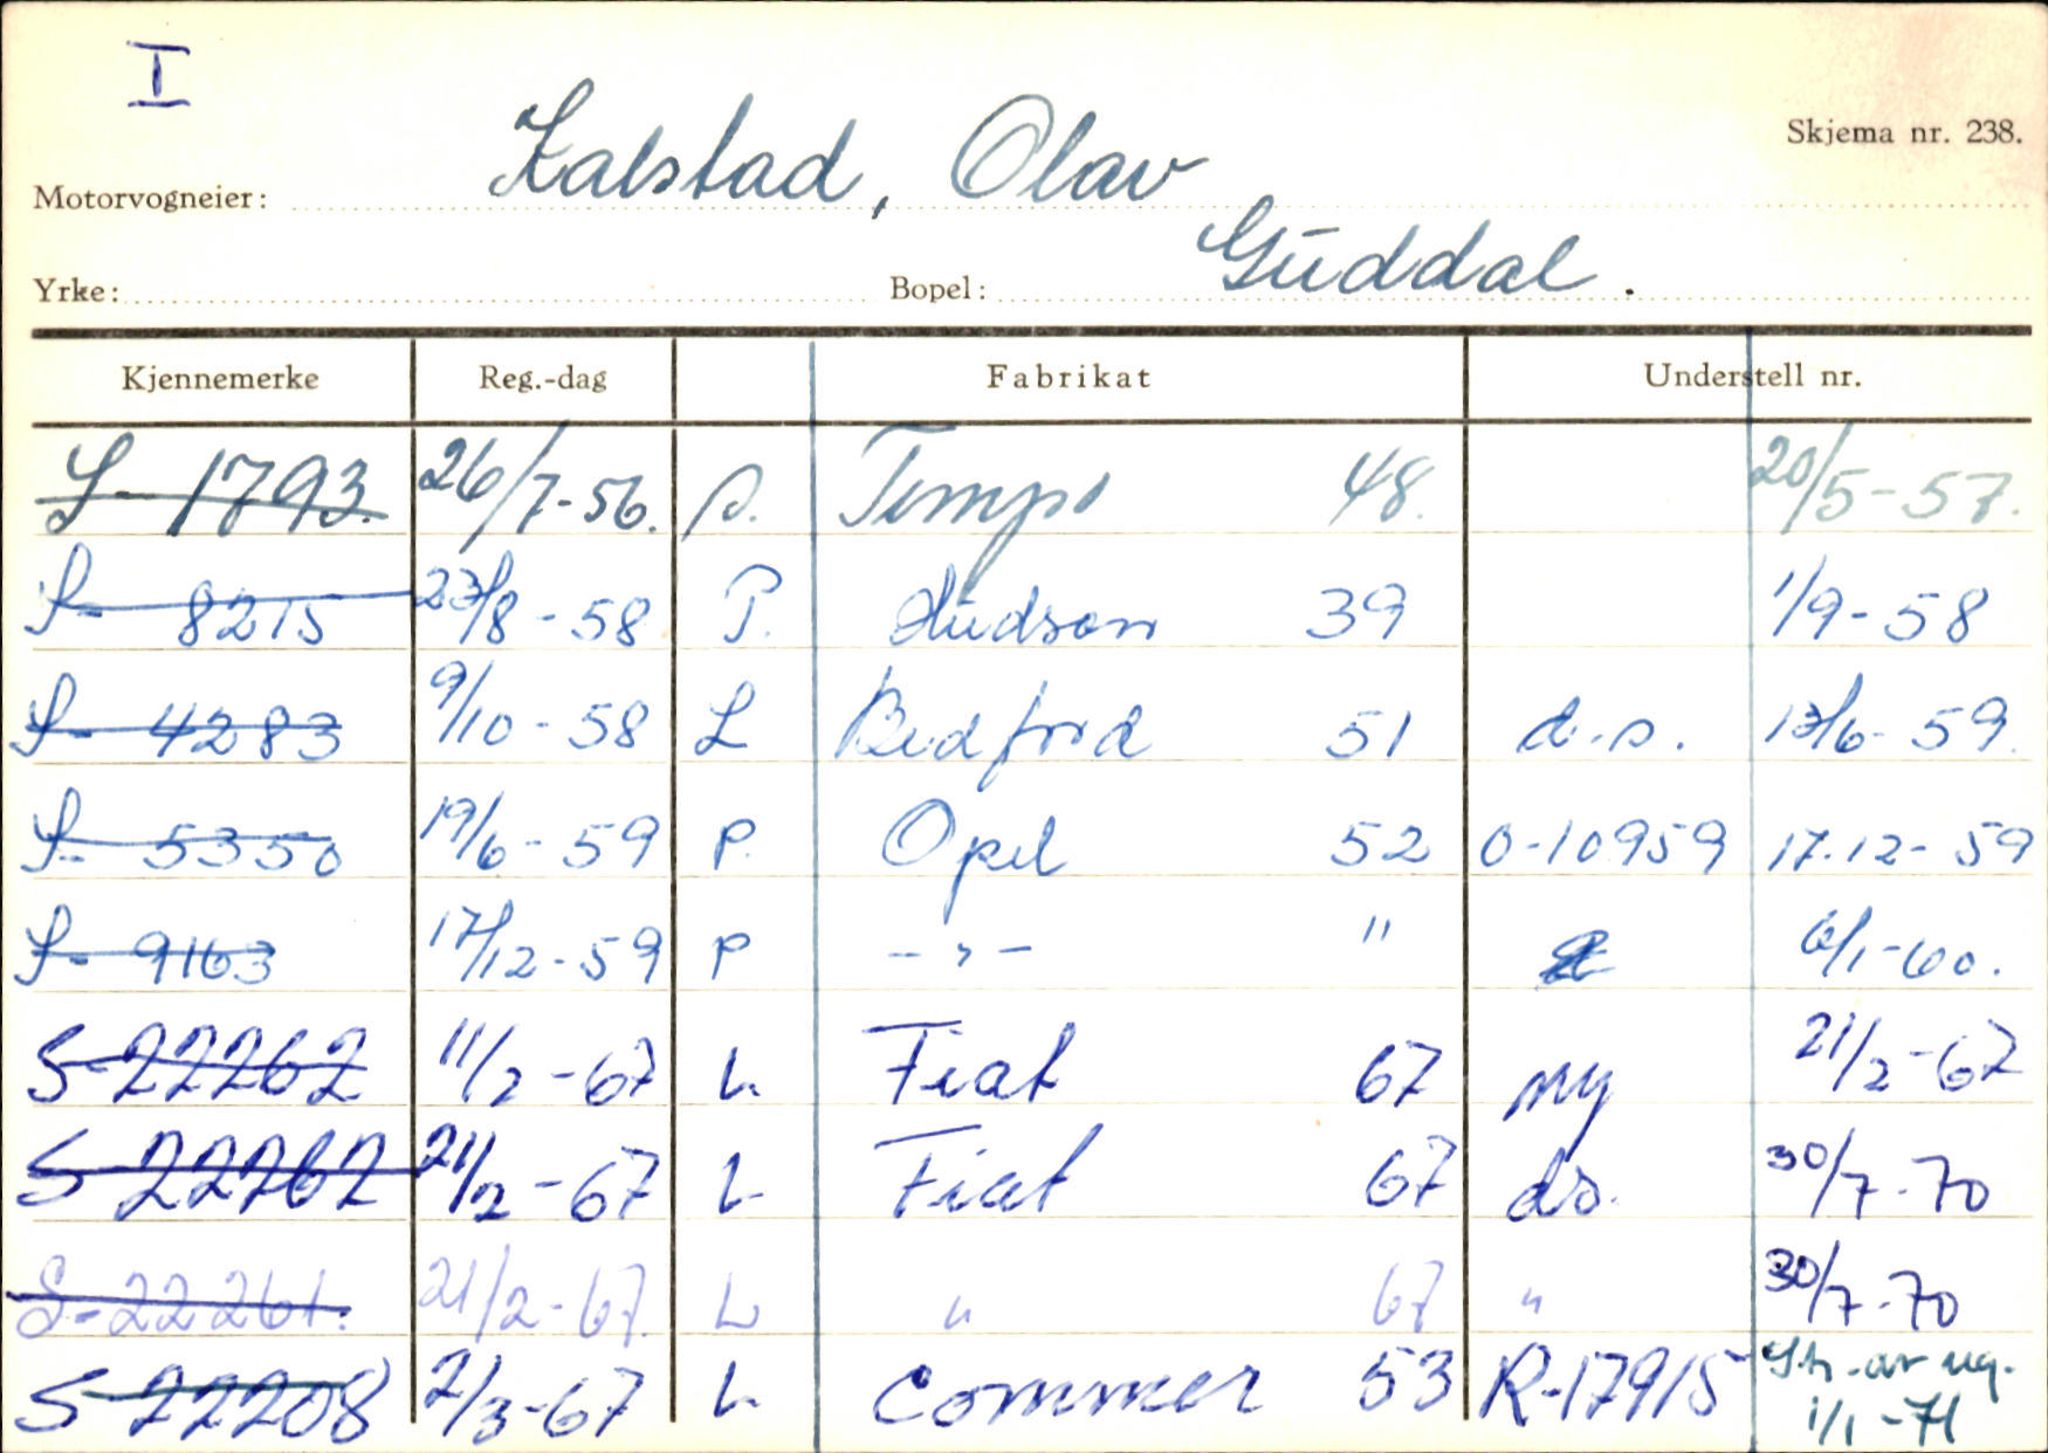 I
Skjema nr. 238.
Motorvogneier: Kalstad, Olav
Yrke: Bopel: Guddal.
Kjennemerke Reg.-dag Fabrikat Understell nr.
S-1793. 26/7-56. p. Tempo 48. 20/5-57.
S-8215 23/8-58 P. Hudson 39 1/9-58
S-4283 9/10-58 L Bedford 51 d.s. 13/6-59.
S-5350 19/6-59 P. Opel 52 O-10959 17.12-59
S-9163 17/12-59 P -"- " 6/1-60.
S-22262 11/2-67 L. Fiat 67 ny 21/2-67
S-22262 21/2-67 L Fiat 67 ds. 30/7-70
S-22261. 21/2-67. L " 67 " 30/7-70
S-22208 2/3-67 L. Commer 53 R-17915 Str. av reg. 1/1-71